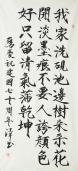 我家洗硯池邊樹朵朵花
開淡墨痕不要人誇顏色
好只留清氣滿乾坤
祝建國七十周年